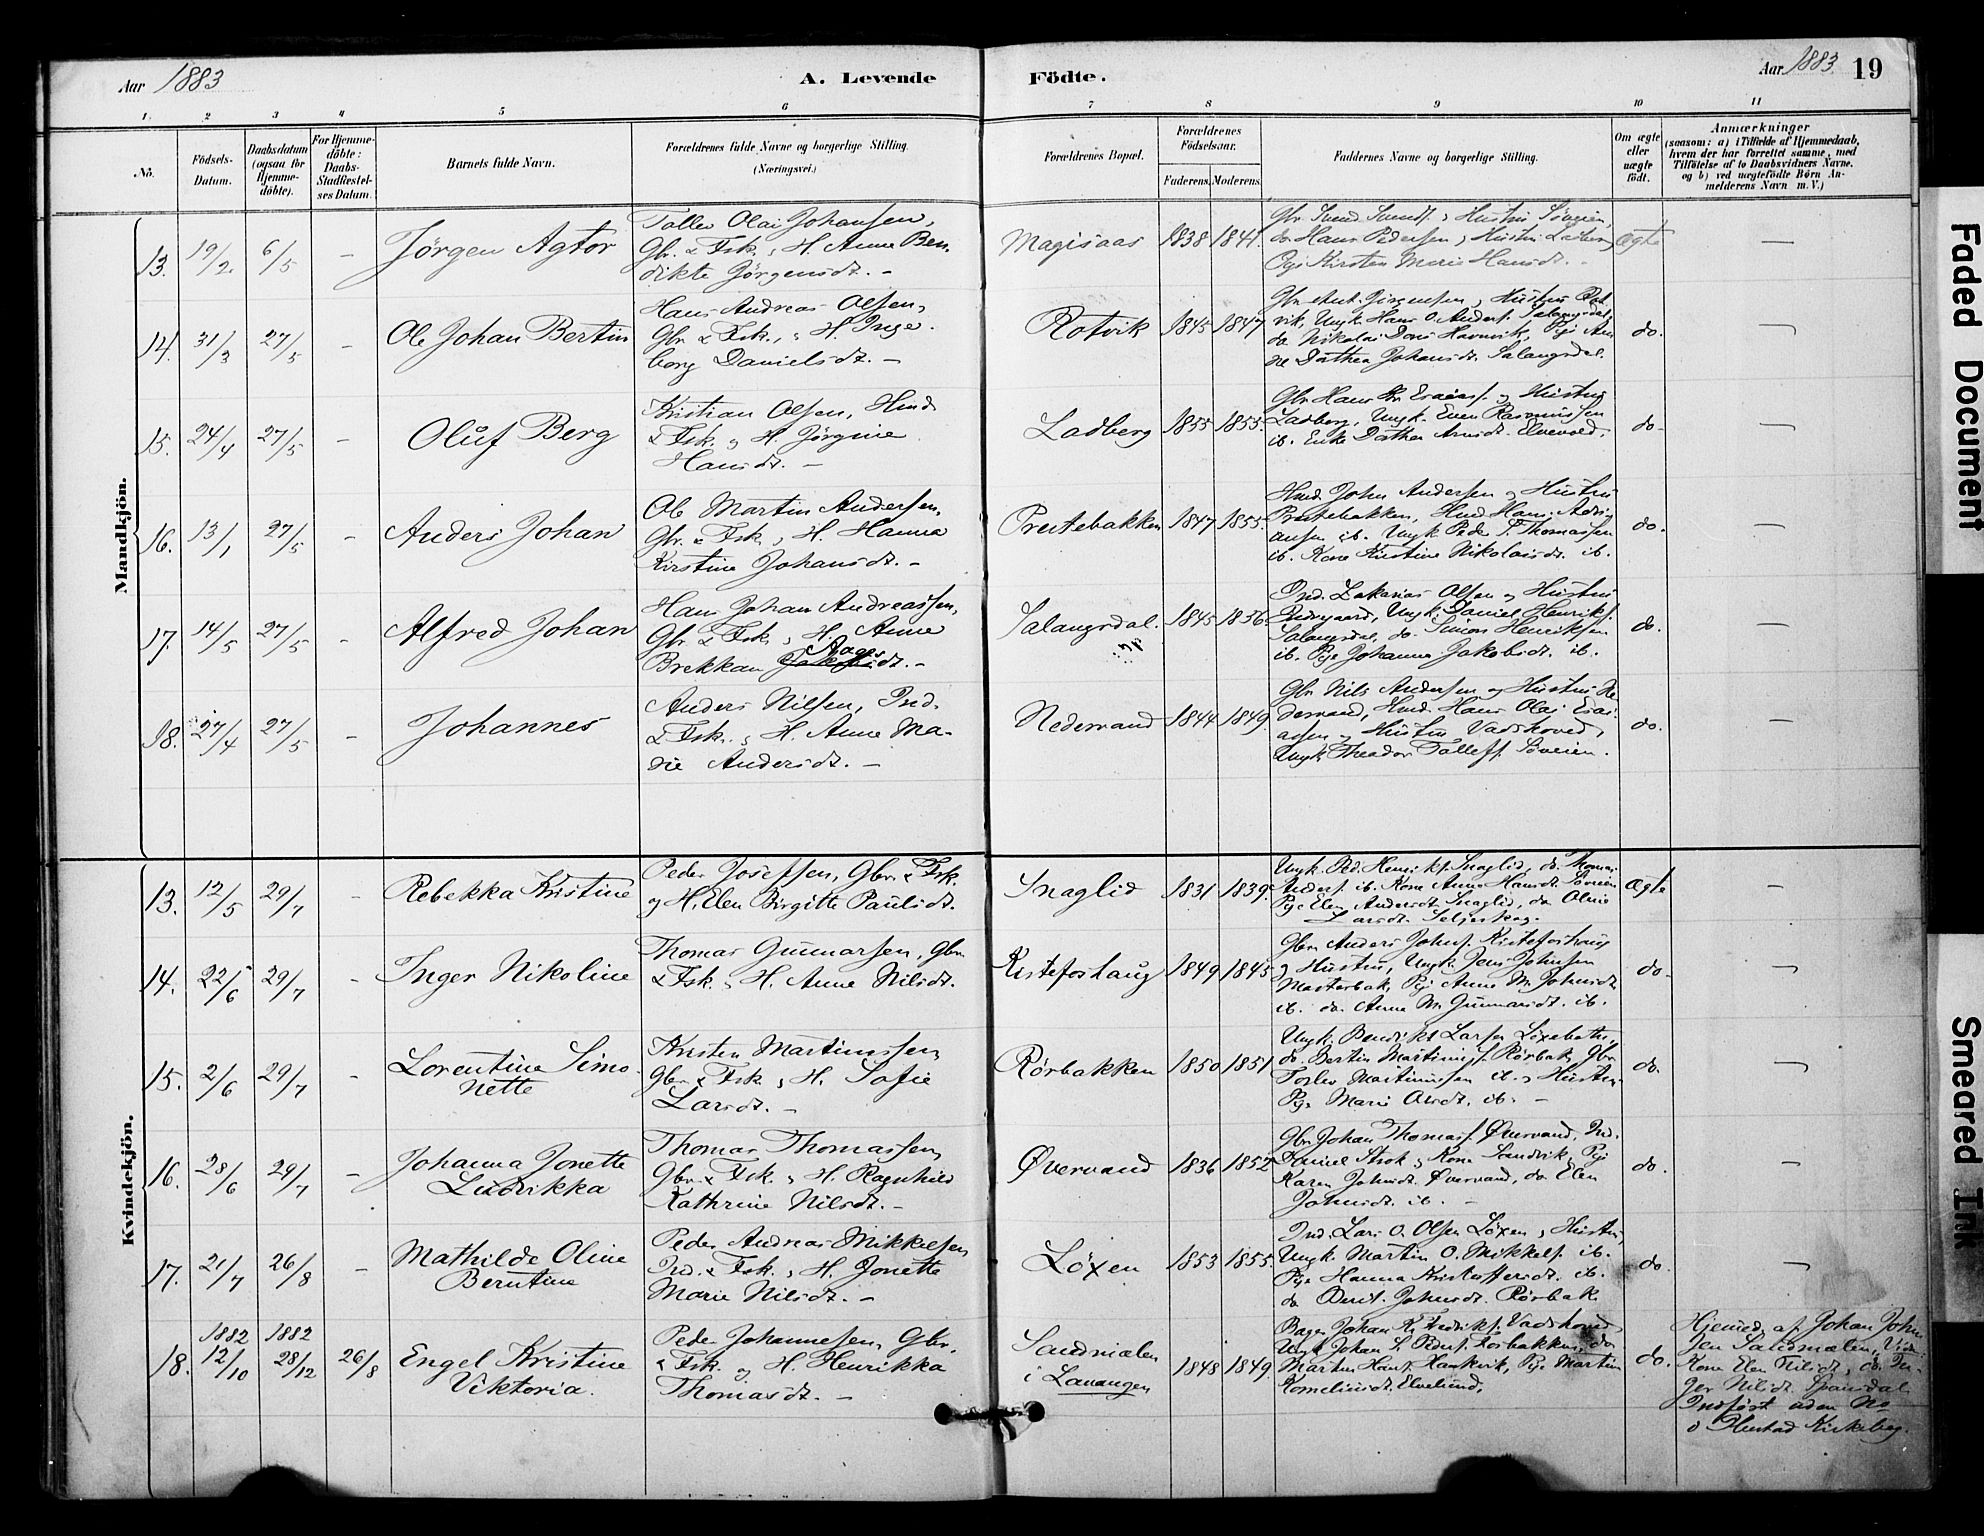 Aar 1883
A. Levende
Födte.
Aar 1883 19
1. 2 3 4 5 6 7 8 9 10 11
No.
Födsels-
Datum.
Daabsdatum
(ogsaa for
Hjemme-
döbte).
For Hjemme-
döbte:
Daabs-
Stadfæstel-
ses Datum.
Barnets fulde Navn.
Forældrenes fulde Navne og borgerlige Stilling.
(Næringsvei.)
Forældrenes Bopæl.
Forældrenes
Födselsaar.
Faderens. Moderens.
Faddernes Navne og borgerlige Stilling.
Om ægte
eller
uægte
födt.
Anmærkninger
(saasom: a) i Tilfælde af Hjemmedaab,
hvem der har forrettet samme, med
Tilföielse af to Daabsvidners Navne.
og b) ved uægtefödte Börn An-
melderens Navn m. V.)
Mandkjön.
13. 19/2 6/5 - Jörgen Agtor
Tollev Olai Johansen,
Gbr. & Fsk. H. Anne Ben
dikte Jörgensdt. -
Magisaas 1838 1841.
do Hans Pedersen
Pige Kirsten Marie Hansdt. -
Ægte —
14. 31/3 27/5 - Ole Johan Bertin
Hans Andreas Olsen,
Gbr. & Fsk., H. Inge
borg Danielsdt. -
Rotvik 1845 1847
vik, Ungk. Hans O. Anders. Salangsdal,
Dorthea Johansdt. Salangsdal.
do. —
15. 24/4 27/5 - Oluf Berg
Kristian Olsen, Hmd
& Fsk. og H. Jörgine
Hansdt. -
Ladberg 1855 1855.
Ladberg, Ungk. Even Rasmussen
ib. Enke Dorthea Arnsdt. Elvevold.
do. —
16. 13/1 27/5 - Anders Johan
Ole Martin Andersen,
Gbr. & Fsk., H. Hanna
Kirstine Johansdt. -
Prestebakken 1847 1855.
Hmd. John Andersen og Hustru
Prestebakken, Hmd Hans Adri-
ansen ib. Ungk. Peder S. Thomassen
ib. Kone Kirstine Nikolaisdt. ib.
do. —
17. 14/5 27/5 - Alfred Johan
Hans Johan Andreassen,
Gbr. & Fsk., H. Anne
Brekkan Aagesdt. -
Salangsdal. 1845 1856
Ind. Zakarias Olsen og Hustru
Ungk. Daniel Henriks.
Salangsdal, do. Simon Henriksen
ib. Pige Johanna Jakobsdt. ib.
do. —
18. 27/4 27/5 - Johannes
Anders Nilsen, Ind.
& Fsk., H. Anne Ma-
rie Andersdt. -
Nedervand 1844 1849.
Gbr. Nils Andersen og Hustru Ne
dervand, Hmd. Hans Olai Esai-
assen og Hustru Vadshoved,
Ungk. Theodor Tollefs. Söveien.
do. —
Kvindekjön.
13. 12/5 29/7 - Rebekka Kristine
Peder Josefsen, Gbr. & Fsk.
og H. Elen Birgitte Paulsdt.
Snaglid 1831 1839.
Ungk. Ped. Henriks. Snaglid, do. Thomas
Anders. ib. Kone Anne Hansdt. Söveien
Pige Elen Andersdt Snaglid, do Oline
Larsdt. Seljeskog.
Ægte —
14. 22/6 29/7 - Inger Nikoline
Thomas Gunnarsen, Gbr.
& Fsk., H. Anne Nilsdt.
Kistefoshaug 1849 1845
Gbr. Anders Johns. Kistefoshaug
og Hustru, Ungk. Jens Johnsen
Mosterbak, Pige Anne M. Johnsdt
ib. do. Anne M. Gunnarsdt. ib.
do. —
15. 2/6 29/7 - Lorentine Simo-
nette
Kristen Martinussen
Gbr. & Fsk., H. Sofie
Larsdt. -
Rörbakken 1850 1851
Ungk. Bendikt Larsen
do. Bertin Martinus. Rörbak, Gbr.
Martinussen ib. og Hustru
Pige Marie Olsdt. ib. -
do. —
16. 28/6 29/7 - Johanna Jonette
Ludvikka
Thomas Thomassen,
Gbr. & Fsk., H. Ragnhild
Kathrine Nilsdt. -
Øvervand 1836 1852
Gbr. Johan Thomas. Øvervand, Ind.
Daniel Strok, Kone Sandvik, Pige
Karen Johnsdt. Øvervand, do Elen
Johnsdt. ib. -
do. —
17. 21/7 26/8 - Mathilde Oline
Berntine
Peder Andreas Mikkelsen
Ind. & Fsk., H. Jonette
Marie Nilsdt. -
Løxen 1853 1855.
Ind. Lars O. Olsen Løxen, Hustru,
Ungk. Martin O. Mikkels. ib.
Pige Hanna Kristoffersdt. ib.
do Berit Johnsdt. Rörbak
do. —
18. 1882 12/10 1882 28/12 26/8 Engel Kristine
Viktoria.
Peder Johannesen, Gbr.
& Fsk. og H. Henrikka
Thomasdt. -
Sandmælen
i Lavangen 1848 1849.
Johan K. Fredriks. Vadshoved,
Ungk. Johan S. Peders. Fosbakken, do
Martin Hans. Pige Martine
Kornelinsdt. Elvelund.
do.
Hjemmed. af Johan John
sen Sandmælen, Vidn.
Kone Elen Nilsdt., do. In-
ger Nilsdt. Spansdal.
Indført uden No
i Ibestad Kirkebog.
Faded Document
Smeared Ink